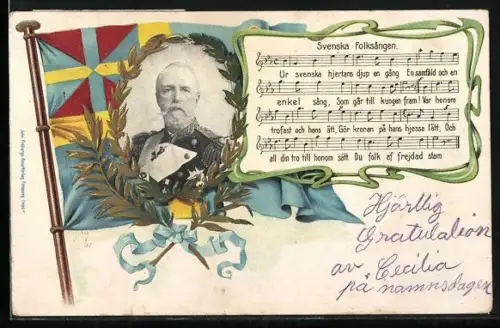 Svenska Folksången.
Ur svenska hjertans djup en gång En samfäld och en
enkel sång, Som går till kungen fram! Var honom
trofast och hans ätt, Gör kronan på hans hjessa lätt, Och
all din tro till honom sätt Du folk af frejdad stam.
Hjärtlig
Gratulation
av Cecilia
på namnsdagen